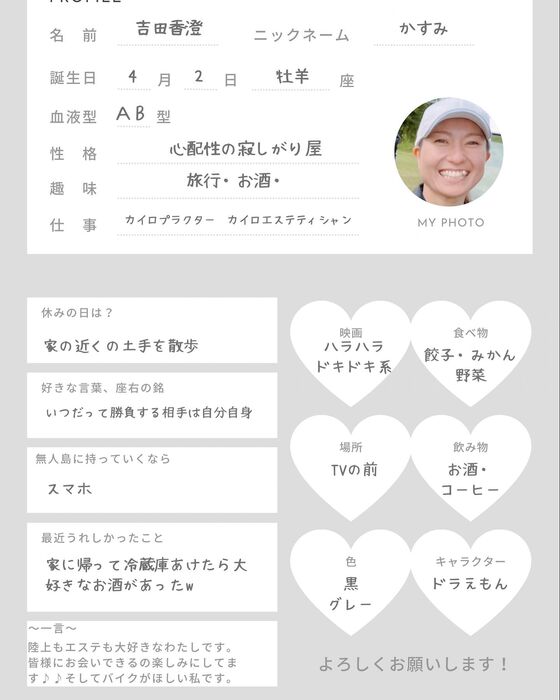 PROFILE
名 前 吉田香澄 ニックネーム かすみ
誕生日 4 月 2 日 牡羊 座
血液型 AB 型
性 格 心配性の寂しがり屋
趣 味 旅行・お酒・
仕 事 カイロプラクター カイロエステティシャン
MY PHOTO
休みの日は？
家の近くの土手を散歩
好きな言葉、座右の銘
いつだって勝負する相手は自分自身
無人島に持っていくなら
スマホ
最近うれしかったこと
家に帰って冷蔵庫あけたら大
好きなお酒があったw
〜一言〜
陸上もエステも大好きなわたしです。
皆様にお会いできるの楽しみにしてま
す♪♪そしてバイクがほしい私です。
映画
ハラハラ
ドキドキ系
食べ物
餃子・みかん
野菜
場所
TVの前
飲み物
お酒・
コーヒー
色
黒
グレー
キャラクター
ドラえもん
よろしくお願いします！